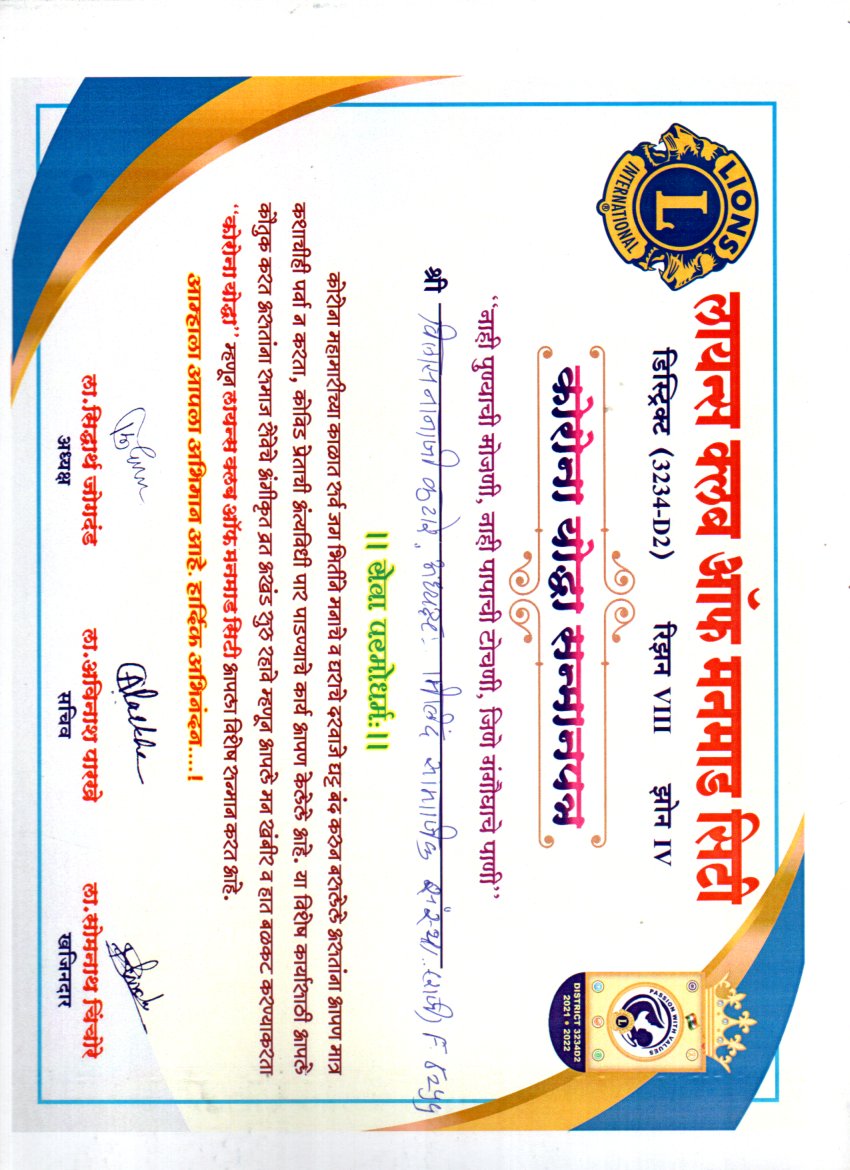 LIONS
L
INTERNATIONAL
®
लायन्स क्लब ऑफ मनमाड सिटी
डिस्ट्रिक्ट (3234-D2) रिझन VIII झोन IV
PASSION WITH VALUES
L
DISTRICT 3234D2
2021 • 2022
कोरोना योद्धा सन्मानपत्र
“नाही पुण्याची मोजणी, नाही पापाची टोचणी, जिणे गंगौघाचे पाणी”
श्री विलास नानाजी कटारे, अध्यक्ष: मिलिंद सामाजिक संस्था (राजी) F
|| सेवा परमोधर्म:||
कोरोना महामारीच्या काळात सर्व जग भितीने मनाचे व घराचे दरवाजे घट्ट बंद करुन बसलेले असतांना आपण मात्र
कशाचीही पर्वा न करता, कोविड प्रेताची अंत्यविधी पार पाडण्याचे कार्य आपण केलेले आहे. या विशेष कार्यासाठी आपले
कौतुक करत असतांना समाज सेवेचे अंगीकृत व्रत अखंड सुरु रहावे म्हणून आपले मन खंबीर व हात बळकट करण्याकरता
“कोरोना योद्धा” म्हणून लायन्स क्लब ऑफ मनमाड सिटी आपला विशेष सन्मान करत आहे.
आम्हाला आपला अभिमान आहे. हार्दिक अभिनंदन....!
ला.सिद्धार्थ जोगदंड ला.अविनाश पारखे ला.सोमनाथ चिंचोरे
अध्यक्ष सचिव खजिनदार